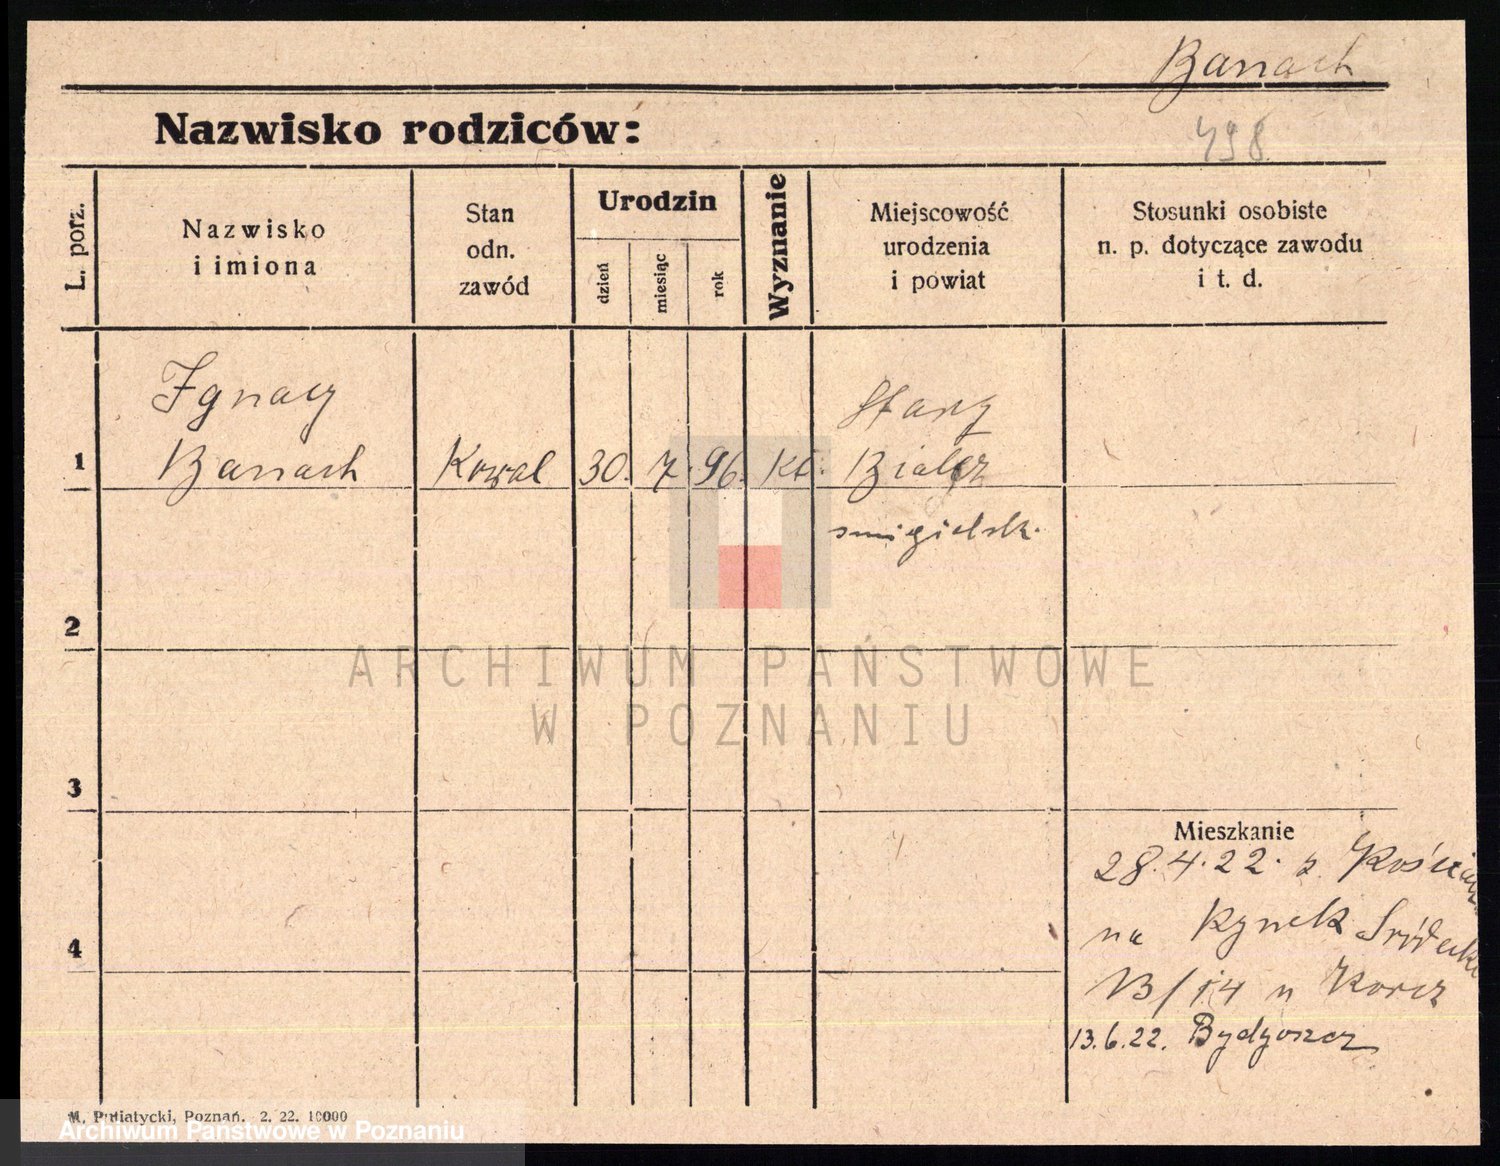 Banach
Nazwisko rodziców:
498
L. porz.
Nazwisko
i imiona
Stan
odn.
zawód
Urodzin
dzień
miesiąc
rok
Wyznanie
Miejscowość
urodzenia
i powiat
Stosunki osobiste
n. p. dotyczące zawodu
i t. d.
Ignacy
Stary
1 Banach Kowal 30. 7. 96. kt. Białcz
smigielsk.
2
ARCHIWUM PAŃSTWOWE
W POZNANIU
3
Mieszkanie
28.4.22. z
na Rynek Śródecki
13/14 u Korcz
4
13.6.22. Bydgoszcz
M. Putiatycki, Poznań. 2. 22. 10000
Archiwum Państwowe w Poznaniu